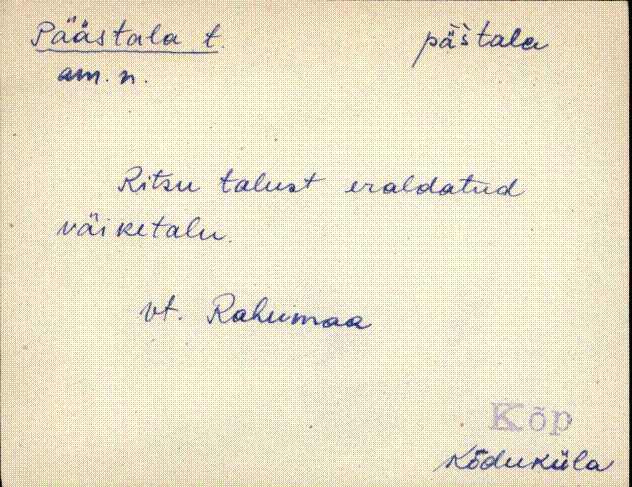 Päästala t. pä̀štala
am. n.
Ritsu talust eraldatud
väiketalu.
vt. Rahumaa
Kõp
Kõduküla